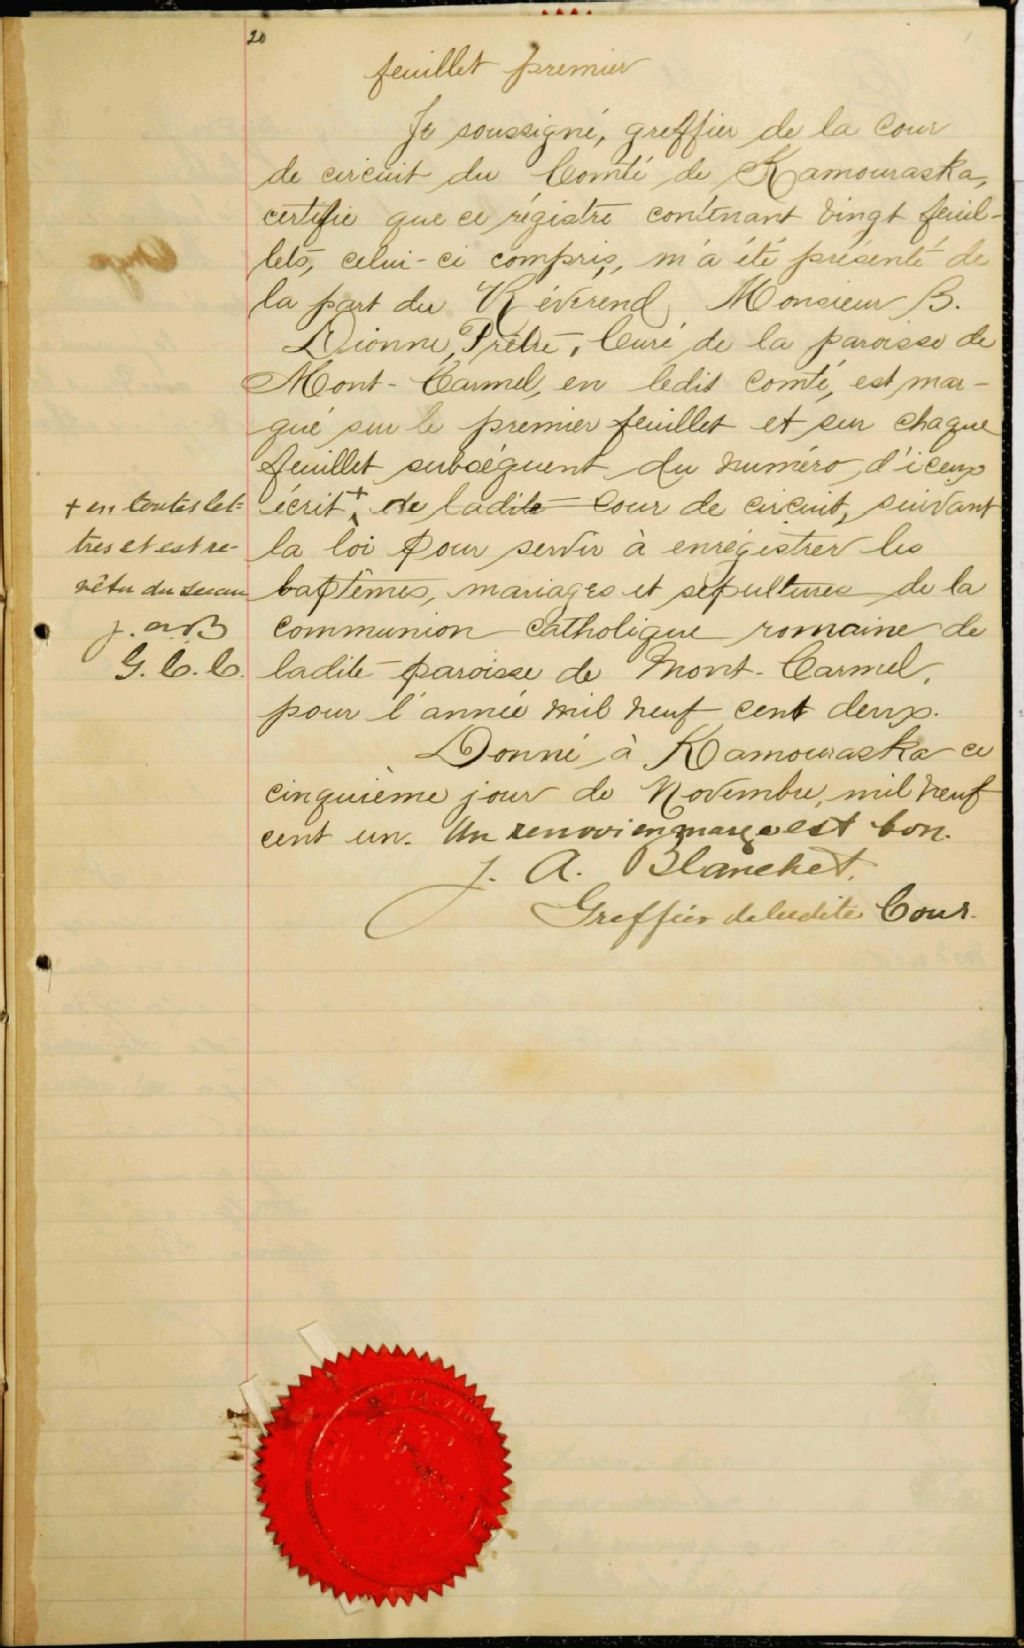 20
feuillet premier
Je soussigné, greffier de la Cour
de circuit du Comté de Kamouraska,
certifie que ce régistre contenant vingt feuil-
lets, celui-ci compris, m'a été présenté de
la part du Révérend Monsieur B.
Dionne, Prêtre, Curé de la paroisse de
Mont-Carmel, en ledit comté, est mar-
qué sur le premier feuillet et sur chaque
feuillet subséquent du numéro d'iceux
écrit + de ladite Cour de circuit, suivant
la loi pour servir à enrégistrer les
baptêmes, mariages et sépultures de la
communion Catholique romaine de
ladite paroisse de Mont-Carmel,
pour l'année mil neuf cent deux.
Donné à Kamouraska ce
cinquième jour de Novembre, mil neuf
cent un. Un renvoi en marge est bon.
J. A. Blanchet.
Greffier de ladite Cour.
+ en toutes let-
tres et est re-
vêtu du sceau
J. A. B
G. C. C.